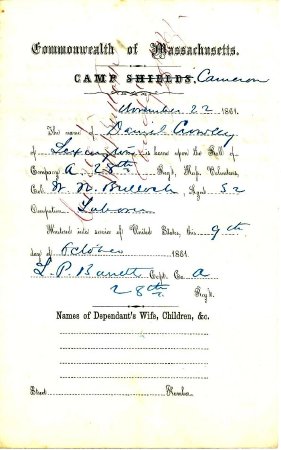 Commonwealth of Massachusetts.
CAMP SHIELDS, Cameron
November 22 1861.
The name of Daniel Crowley
of Lexington is borne upon the Roll of
Company A 28th Reg't, Mass. Volunteers,
Col. Aged 52
Occupation Laborer
Mustered into service of United States, this 9th
day of October 1861.
L. P. Barrett Capt. Co. A
28th Reg't.
Names of Dependant's Wife, Children, &c.
Street Number